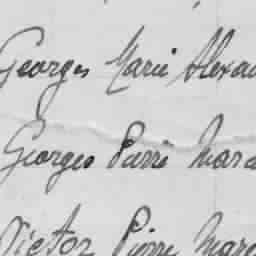 Georges Marie Alexan
Georges Pierre Marc
Victor Pierre Marc